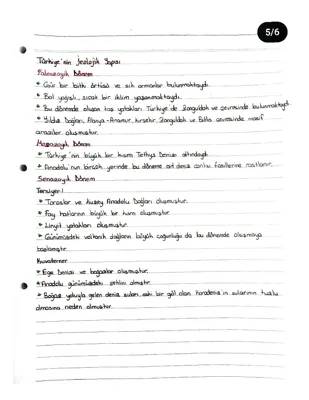 5/6
Türkiye'nin Jeolojik Yapısı
Paleozoyik Dönem
* Gür bir bitki örtüsü ve sık ormanlar bulunmaktaydı.
* Bol yağışlı, sıcak bir iklim yaşanmaktaydı.
* Bu dönemde oluşan taş yatakları Türkiye'de Zonguldak ve çevresinde bulunmaktadır.
* Yıldız Dağları, Alanya-Anamur, Kırşehir, Zonguldak ve Bitlis çevresinde masif
araziler oluşmuştur.
Mezozoyik Dönem
* Türkiye'nin büyük bir kısmı Tethys Denizi altındaydı.
* Anadolu'nun birçok yerinde bu döneme ait deniz canlısı fosillerine rastlanır.
Senozoyik Dönem
Tersiyer:
* Toroslar ve Kuzey Anadolu Dağları oluşmuştur.
* Fay hatlarının büyük bir kısmı oluşmuştur.
* Linyit yatakları oluşmuştur.
* Günümüzdeki volkanik dağların büyük çoğunluğu da bu dönemde oluşmaya
başlamıştır.
Kuvaterner
* Ege Denizi ve boğazlar oluşmuştur.
* Anadolu günümüzdeki şeklini almıştır.
* Boğaz yoluyla gelen deniz suları, eski bir göl olan Karadeniz'in sularının tuzlu
olmasına neden olmuştur.